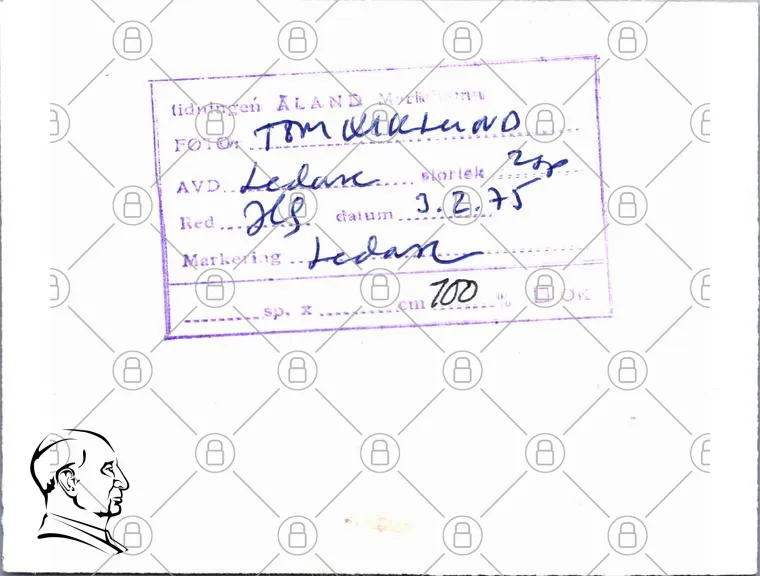 tidningen ÅLAND Mariehamn
FOTO: TOM WIKLUND
AVD. Ledare storlek 2sp
Red datum 3.2.75
Markering Ledare
sp. x cm 100 % OK